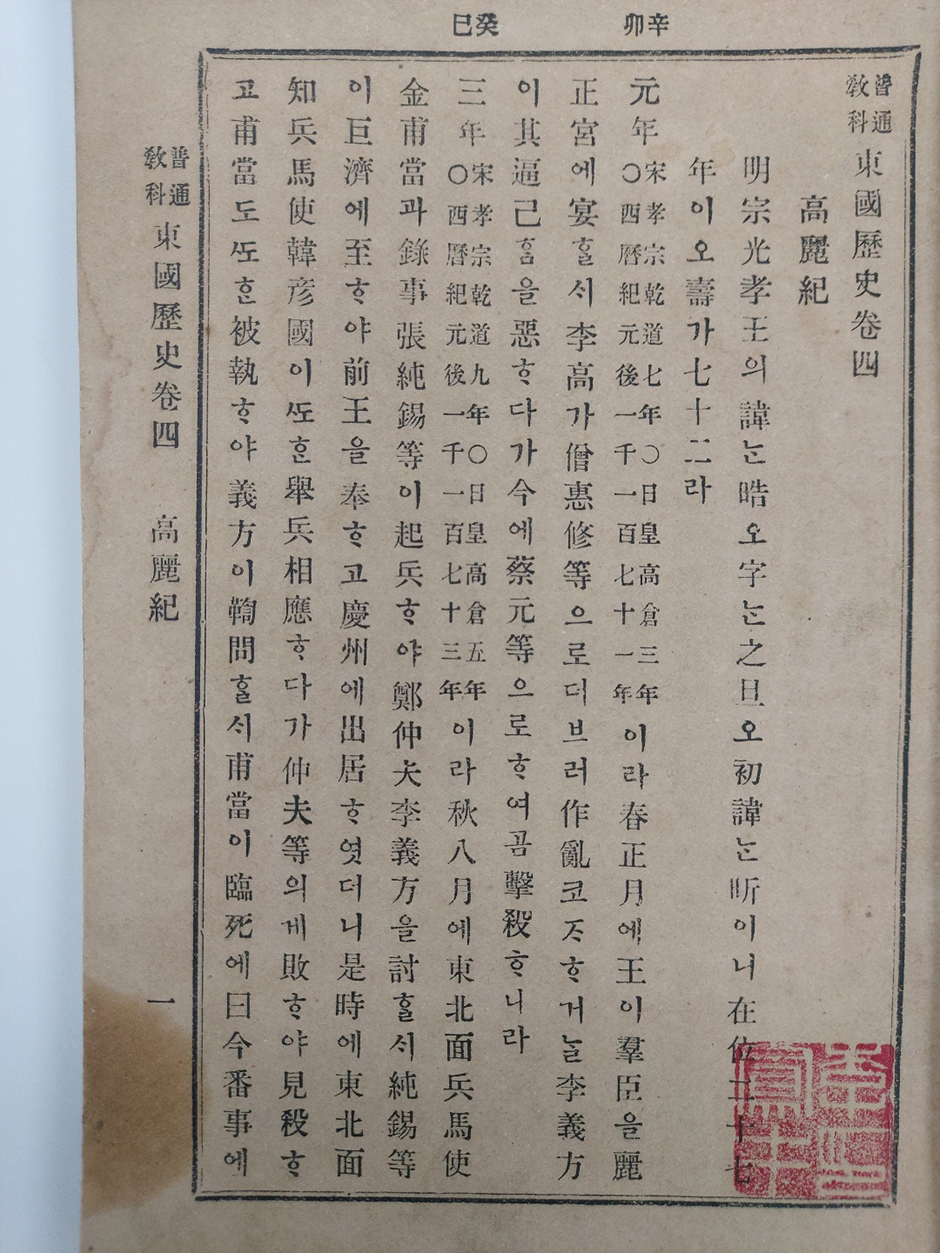 辛卯
癸巳
普通敎科東國歷史卷四
高麗紀
明宗光孝王의諱ᄂᆞᆫ晧오字ᄂᆞᆫ之旦오初諱ᄂᆞᆫ昕이니在位二十七
年이오壽가七十二라
元年宋孝宗乾道七年〇日皇高倉三年〇西曆紀元後一千一百七十一年이라春正月에王이羣臣을麗
正宮에宴ᄒᆞᆯᄉᆡ李高가僧惠修等으로더브러作亂코ᄌᆞᄒᆞ거ᄂᆞᆯ李義方
이其逼己ᄒᆞᆷ을惡ᄒᆞ다가今에蔡元等으로ᄒᆞ여곰擊殺ᄒᆞ니라
三年宋孝宗乾道九年〇日皇高倉五年〇西曆紀元後一千一百七十三年이라秋八月에東北面兵馬使
金甫當과錄事張純錫等이起兵ᄒᆞ야鄭仲夫李義方을討ᄒᆞᆯᄉᆡ純錫等
이巨濟에至ᄒᆞ야前王을奉ᄒᆞ고慶州에出居ᄒᆞ엿더니是時에東北面
知兵馬使韓彦國이ᄯᅩᄒᆞᆫ舉兵相應ᄒᆞ다가仲夫等의게敗ᄒᆞ야見殺ᄒᆞ
고甫當도ᄯᅩᄒᆞᆫ被執ᄒᆞ야義方이鞫問ᄒᆞᆯᄉᆡ甫當이臨死에曰今番事에
普通敎科東國歷史卷四 高麗紀 一